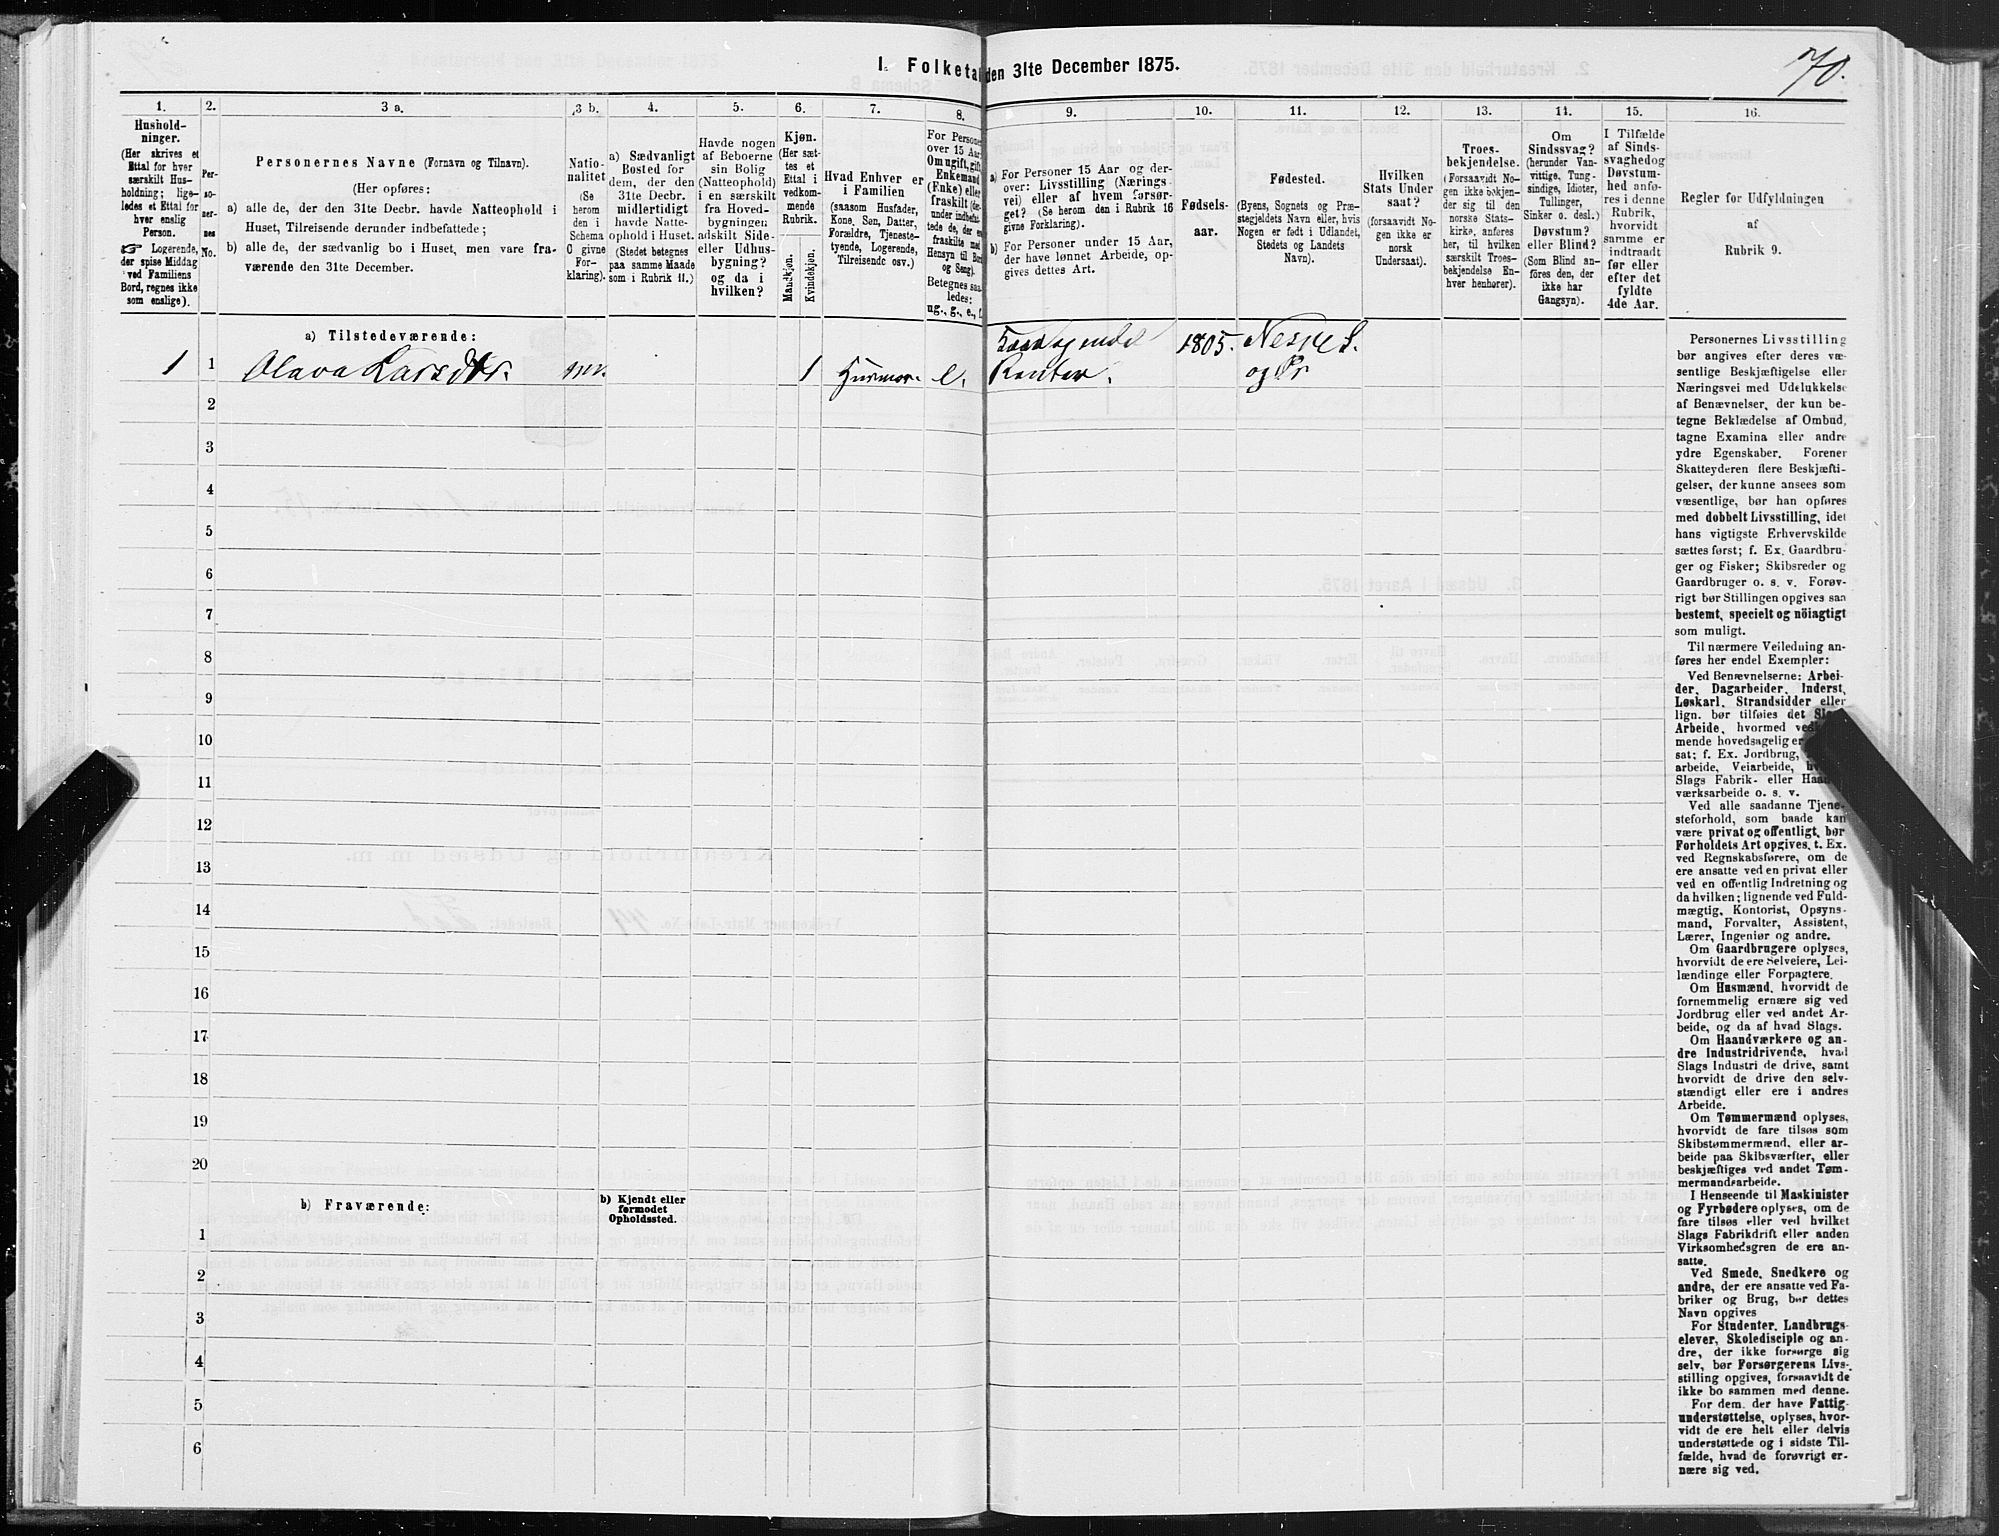 1. Folketa
den 31te December 1875.
70.
1.
Hushold-
ninger.
(Her skrives et
Ettal for hver
særskilt Hus-
holdning; lige-
ledes et Ettal for
hver enslig
Person.
☞ Logerende,
der spise Middag
ved Familiens
Bord, regnes ikke
som enslige).
2.
Per-
so-
ner-
nes
No.
3 a.
Personernes Navne (Fornavn og Tilnavn).
(Her opføres:
a) alle de, der den 31te Decbr. havde Natteophold i
Huset, Tilreisende derunder indbefattede;
b) alle de, der sædvanlig bo i Huset, men vare fra-
værende den 31te December.
3 b.
Natio-
nalitet
(Se
herom
den i
Schema
O givne
For-
klaring).
4.
a) Sædvanligt
Bosted for
dem, der den
31te Decbr.
midlertidigt
havde Natte-
ophold i Huset.
(Stedet betegnes
paa samme Maade
som i Rubrik 11.)
5.
Havde nogen
af Beboerne
sin Bolig
(Natteophold)
i en særskilt
fra Hoved-
bygningen
adskilt Side-
eller Udhus-
bygning?
og da i
hvilken?
6.
Kjøn.
(Her sæt-
tes et
Ettal i
vedkom-
mende
Rubrik.
Mandkjøn.
Kvindekjøn.
7.
Hvad Enhver er
i Familien
(saasom Husfader,
Kone, Søn, Datter,
Forældre, Tjeneste-
tyende, Logerende,
Tilreisende osv.)
8.
For Persone
over 15 Aar
Om ugift, gift
Enkemand
(Enke) eller
fraskilt (de
under indbefat-
tede de, der e
fraskilte med
Hensyn til Bord
og Seng).
Betegnes saa-
ledes:
ug., g., e., f.
9.
a) For Personer 15 Aar og der-
over: Livsstilling (Nærings-
vei) eller af hvem forsør-
get? (Se herom den i Rubrik 16
givne Forklaring).
b) For Personer under 15 Aar,
der have lønnet Arbeide, op-
gives dettes Art.
10.
Fødsels-
aar.
11.
Fødested.
(Byens, Sognets og Præ-
stegjeldets Navn eller, hvis
Nogen er født i Udlandet,
Stedets og Landets
Navn).
12.
Hvilken
Stats Under
saat?
(forsaavidt No-
gen ikke er
norsk
Undersaat).
13.
Troes-
bekjendelse.
(Forsaavidt No-
gen ikke bekjen-
der sig til den
norske Stats-
kirke, anføres
her, til hvilken
særskilt Troes-
bekjendelse En-
hver henhører).
14.
Om
Sindssvag?
(herunder Van-
vittige, Tung-
sindige, Idioter,
Tullinger,
Sinker o. desl.)
Døvstum?
eller Blind?
(Som Blind an-
føres den, der
ikke har
Gangsyn).
15.
I Tilfælde
af Sinds-
svaghedog
Døvstum-
hed anfø-
res i denne
Rubrik,
hvorvidt
samme er
indtraadt
før eller
efter det
fyldte
4de Aar.
16.
Regler for Udfyldningen
af
Rubrik 9.
a) Tilstedeværende:
1 1 Olava Larsdtr. nn. 1 Husmor. e.
1805. Nesne S.
og Pr
2
3
4
5
6
7
8
9
10
11
12
13
14
15
16
17
18
19
20
b) Fraværende:
b) Kjendt eller
formodet
Opholdssted.
1
2
3
4
5
6
Personernes Livsstilling
bør angives efter deres væ-
sentlige Beskjæftigelse eller
Næringsvei med Udelukkelse
af Benævnelser, der kun be-
tegne Beklædelse af Ombud,
tagne Examina eller andre
ydre Egenskaber. Forener
Skatteyderen flere Beskjæfti-
gelser, der kunne ansees som
væsentlige, bør han opføres
med dobbelt Livsstilling, idet
hans vigtigste Erhvervskilde
sættes først; f. Ex. Gaardbru-
ger og Fisker; Skibsreder og
Gaardbruger o. s. v. Forøv-
rigt bør Stillingen opgives saa
bestemt, specielt og nöiagtigt
som muligt.
Til nærmere Veiledning an-
føres her endel Exempler:
Ved Benævnelserne: Arbei-
der, Dagarbeider, Inderst,
Løskarl, Strandsidder eller
lign. bør tilføies det
Arbeide, hvormed
mende hovedsagelig er
sat; f. Ex. Jordbrug,
arbeide, Veiarbeide,
Slags Fabrik- eller
værksarbeide o. s. v.
Ved alle saadanne Tjene-
steforhold, som baade kan
være privat og offentligt, bør
Forholdets Art opgives, t. Ex.
ved Regnskabsførere, om de
ere ansatte ved en privat eller
ved en offentlig Indretning og
da hvilken; lignende ved Fuld-
mægtig, Kontorist, Opsyns-
mand, Forvalter, Assistent,
Lærer, Ingeniør og andre.
Om Gaardbrugere oplyses,
hvorvidt de ere Selveiere, Lei-
lændinge eller Forpagtere.
Om Husmænd, hvorvidt de
fornemmelig ernære sig ved
Jordbrug eller ved andet Ar-
beide, og da af hvad Slags.
Om Haandværkere og an-
dre Industridrivende, hvad
Slags Industri de drive, samt
hvorvidt de drive den selv-
stændigt eller ere i andres
Arbeide.
Om Tømmermænd oplyses,
hvorvidt de fare tilsøs som
Skibstømmermænd, eller ar-
beide paa Skibsværfter, eller
beskjæftiges ved andet Tøm-
mermandsarbeide.
I Henseende til Maskinister
og Fyrbødere oplyses, om de
fare tilsøs eller ved hvilket
Slags Fabrikdrift eller anden
Virksomhedsgren de ere an-
satte.
Ved Smede, Snedkere og
andre, der ere ansatte ved Fa-
briker og Brug, bør dettes
Navn opgives
For Studenter, Landbrugs-
elever, Skoledisciple og an-
dre, der ikke forsørge sig
selv, bør Forsørgerens Livs-
stilling opgives, forsaavidt de
ikke bo sammen med denne.
For dem, der have Fattig-
understøttelse, oplyses, hvor-
vidt de ere helt eller delvis
understøttede og i sidste Til-
fælde, hvad de forøvrigt er-
nære sig ved.